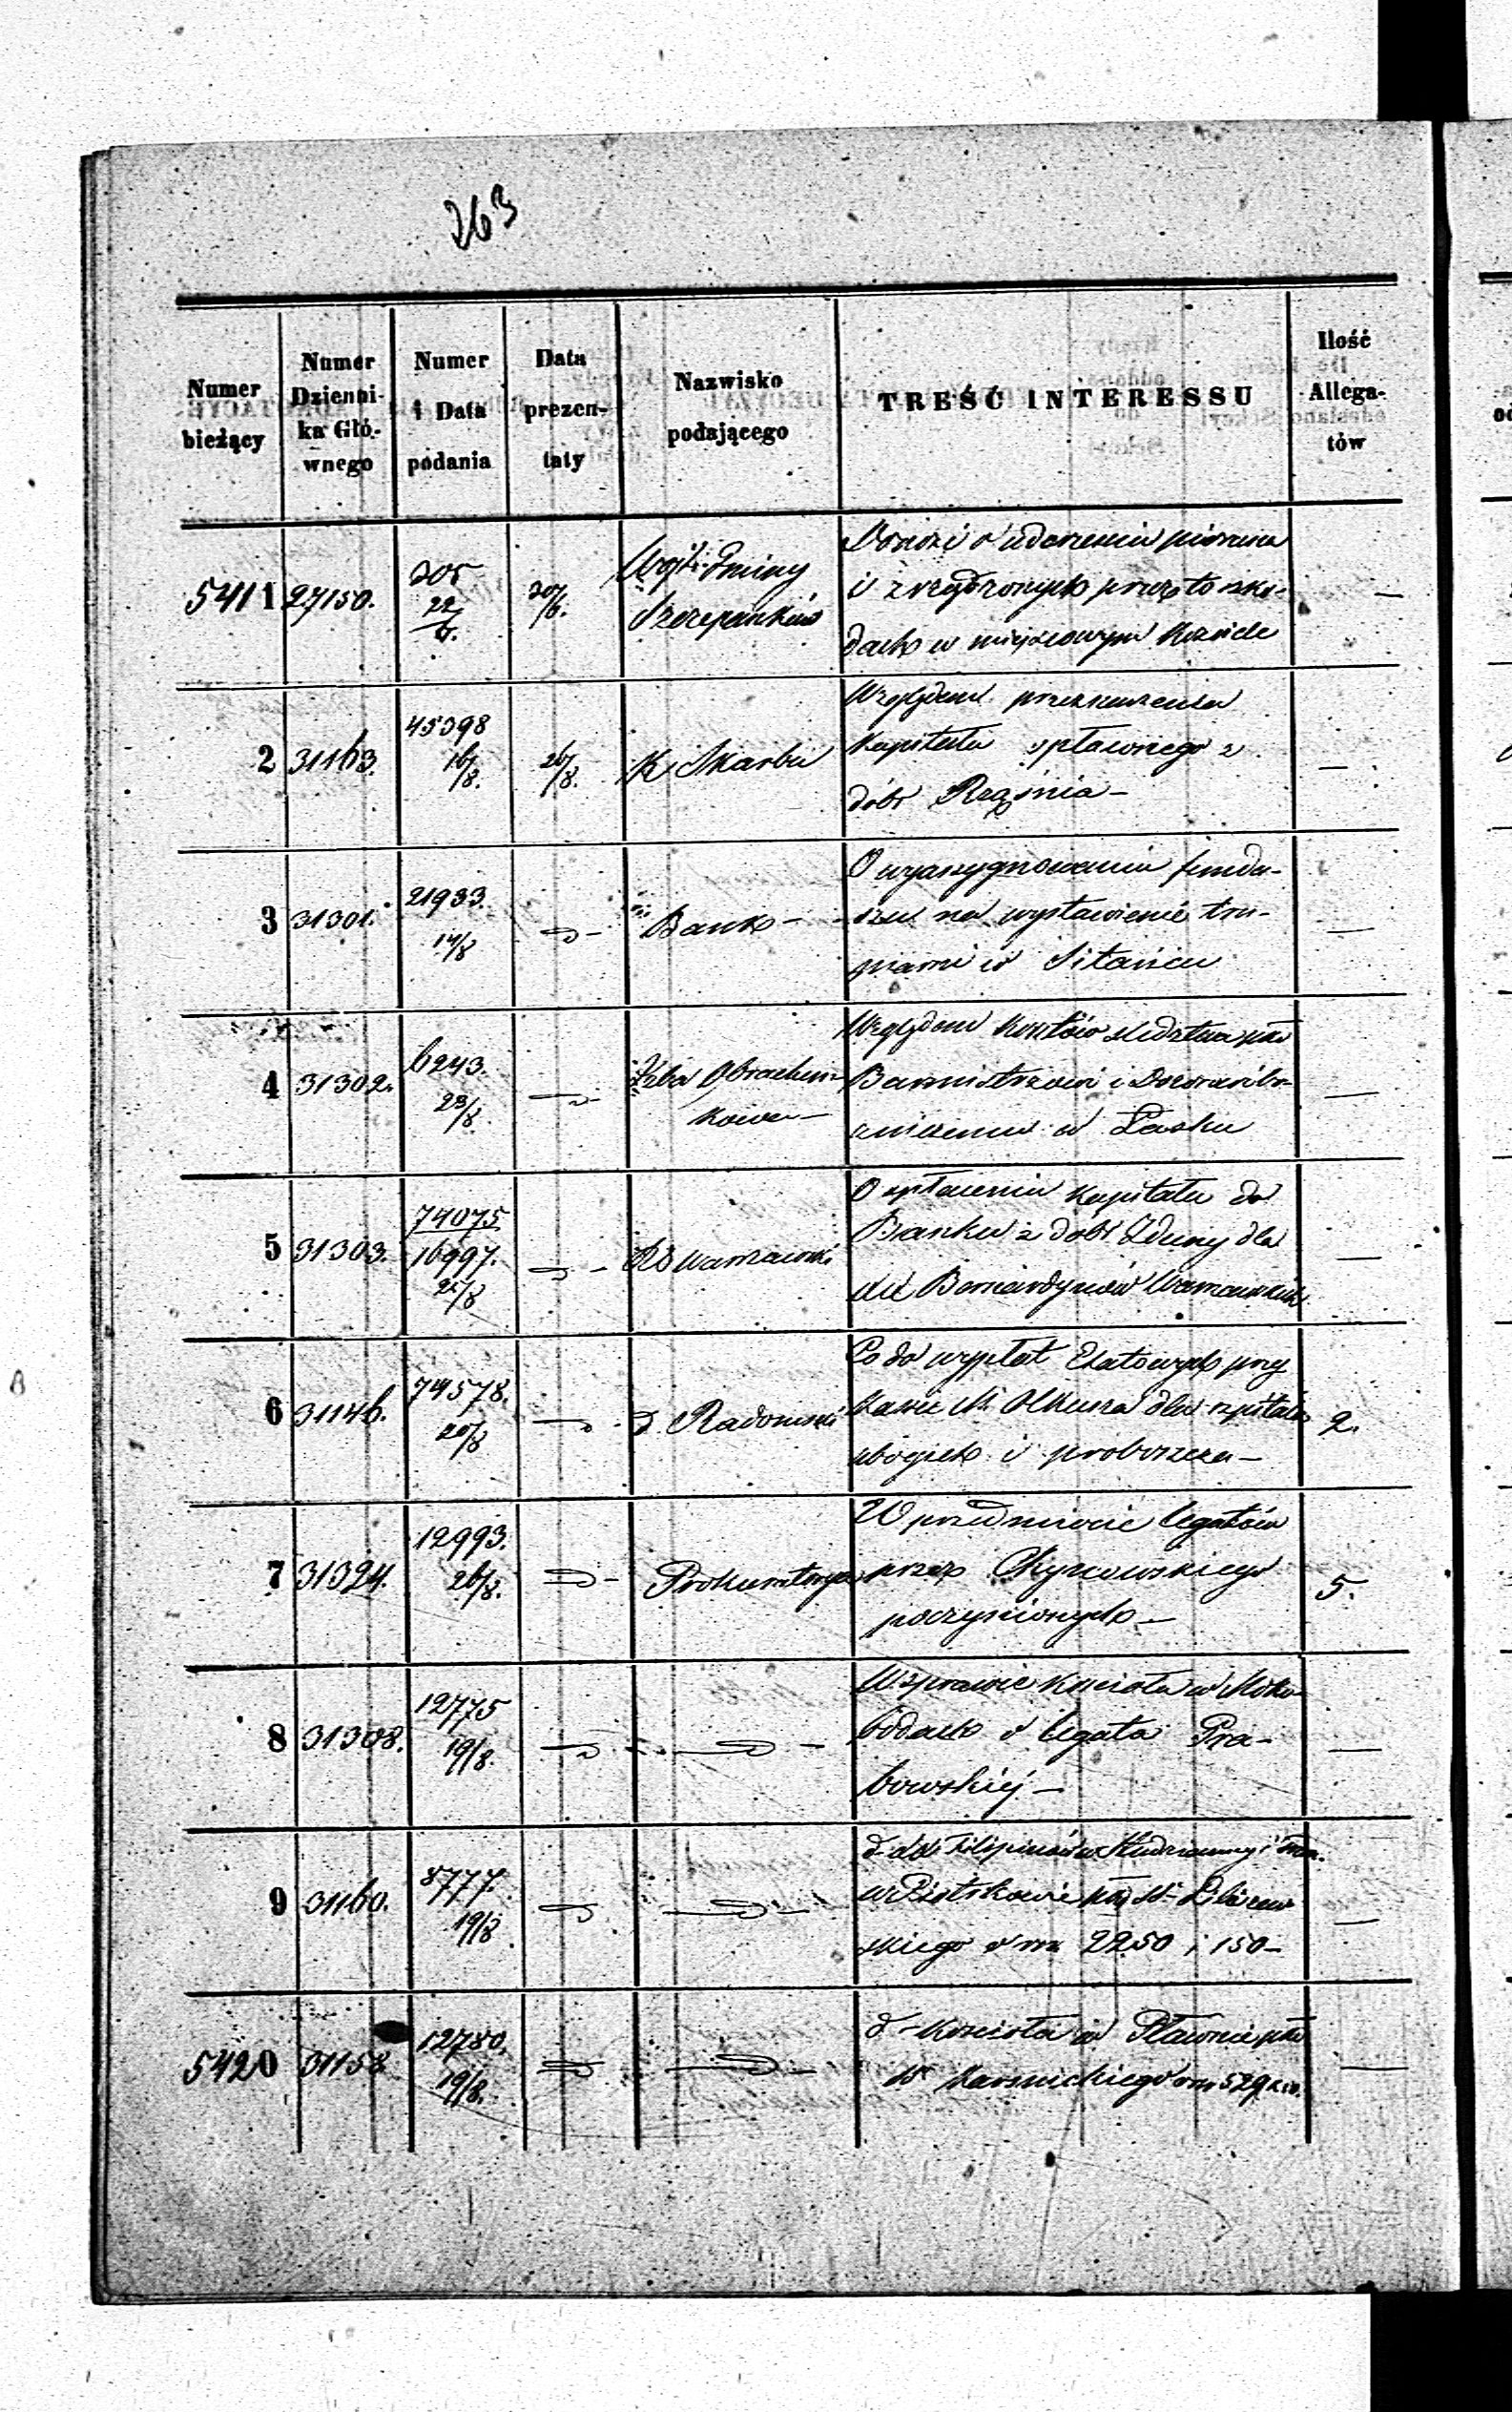 263
Numer bieżący
Numer Dzienni- ka Głó- wnego
Numer i Data podania
Data prezen- taty
Nazwisko podającego
TREŚĆ INTERESSU
Ilość Allega- tów
5411 27150. 205 22/6. 20/6. Wójt Gminy Szczepanków
Donosi o uderzeniu piorunu
i zrządzonych przez to szko-
dach w miejscowym Kościele
—
2 31163. 45398 16/8. 26/8. K Skarbu
Względem przekazenia
Kapitału spławnego z
dóbr Rząśnia —
—
3 31301. 21933. 14/8 —
Bank —
O wyasygnowaniu fundu-
szu na wystawienie tru-
piarni w Sitańcu
—
4 31302. 6243. 23/8 —
Izba Obrachun-
kowa —
Względem Kosztów śledztwa pko
Burmistrzowi i Dozorowi bo-
żniczemu w Łasku
—
5 31303. 74075 16997. 22/8 —
RG Warszawski
O spłaceniu Kapitału do
Banku z dóbr Zduny dla
XX Bernardynów Warszawskich
—
6 31146. 74578. 20/8 —
d. Radomski
Co do wypłat Etatowych przy
Kasie M. Olkusza dla szpitala
ubogich i proboszcza —
2.
7 31324. 12993. 26/8. —
Prokuratorya
W przedmiocie legatów
przez Chyszowskiego
poczynionych —
5.
8 31308. 12775 19/8. —
W sprawie Kościoła w Moko-
bodach o legata Gra-
bowskiej —
—
9 31160. 8777. 19/8 —
d. XX. Filipinów w Studzianny i
w Piotrkowie pko
skiego o rs 2250 i 150 —
—
5420 31158 12780. 19/8. —
d — Kościoła w Pławnie pko
W Karnickiego o rs 529
—